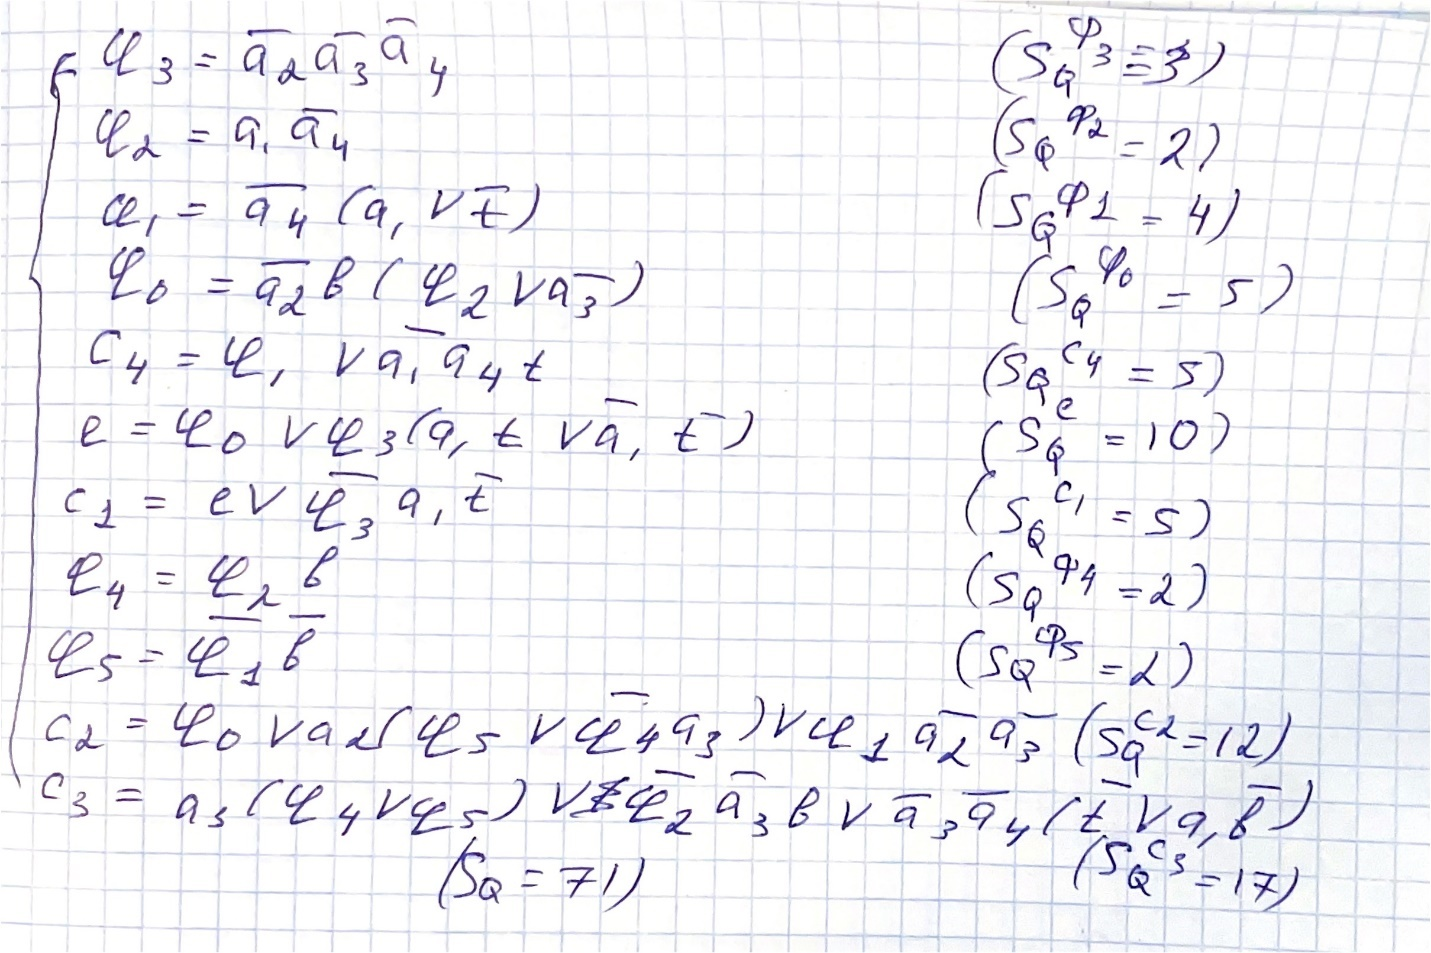 φ₃ = a̅₂ a̅₃ a̅₄ (S_Q^φ₃ = 3)
φ₂ = a₁ a̅₄ (S_Q^φ₂ = 2)
φ₁ = a̅₄ (a₁ ∨ t̅) (S_Q^φ1 = 4)
φ₀ = a̅₂ b (φ₂ ∨ a̅₃) (S_Q^φ₀ = 5)
c₄ = φ₁ ∨ a̅₁ a₄ t (S_Q^c₄ = 5)
e = φ₀ ∨ φ₃ (a₁ t ∨ a̅₁ t̅) (S_Q^e = 10)
c₁ = e ∨ φ̅₃ a₁ t̅ (S_Q^c₁ = 5)
φ₄ = φ₂ b (S_Q^φ₄ = 2)
φ₅ = φ̅₁ b̅ (S_Q^φ₅ = 2)
c₂ = φ₀ ∨ a₂ (φ₅ ∨ φ̅₄ a₃) ∨ φ₁ a̅₂ a̅₃ (S_Q^c₂ = 12)
c₃ = a₃ (φ₄ ∨ φ₅) ∨ φ̅₂ a̅₃ b ∨ a̅₃ a̅₄ (t̅ ∨ a₁ b̅)
(S_Q = 71) (S_Q^c₃ = 17)